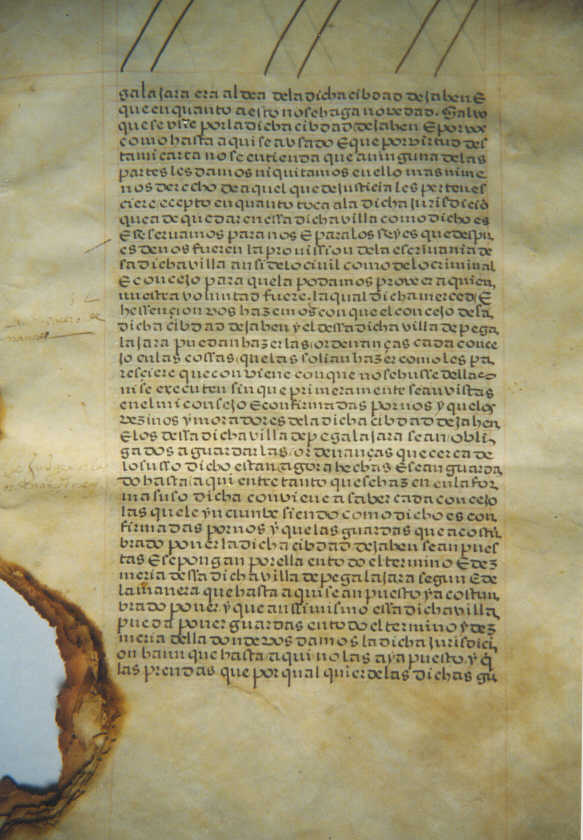 galajara era aldea dela dicha cibdad de jahen E
que en quanto a esto no se haga novedad. Salvo
que se vse por la dicha cibdad de jahen E por vos
como hasta aqui se a vsado E que por virtud des
ta mi carta no se entienda que a ninguna de las
partes les damos ni quitamos en ello mas ni me
nos derecho de aquel que de justicia les pertenes
ciere ecepto en quanto toca ala dicha jurisdiciō
que a de quedar en essa dicha villa como dicho es
E reservamos para nos E para los reyes que despu
es de nos fueren la provission dela escrivania de
sa dicha villa ansi delo civil como delo criminal
E concejo para que la podamos proveer a quien
nuestra voluntad fuere. la qual dicha merced E
hessencion vos hazemos con que el concejo dela
dicha cibdad de jahen y el dessa dicha villa de pega
lajara puedan hazer las ordenanças cada conce
jo en las cossas que las solian hazer como les pa
resciere que conviene con que no se husse dellas
ni se executen sin que primeramente sean vistas
en el mi consejo E confirmadas por nos y que los
vezinos y moradores dela dicha cibdad de jahen
E los dessa dicha villa de pegalajara sean obli
gados a guardar las ordenanças que cerca de
lo susso dicho estan agora hechas E sean guarda
do hasta aqui entre tanto que se hazen en la for
ma suso dicha conviene a saber cada concejo
las que le yncunbe siendo como dicho es con
firmadas por nos y que las guardas que a costū
brado poner la dicha cibdad de jahen sean pues
tas E se pongan por ella en todo el termino E dez
meria dessa dicha villa de pegalajara segun E de
la manera que hasta aqui se an puesto y a costun
brado poner. y que anssimismo essa dicha villa
pueda poner guardas en todo el termino y dez
meria della donde vos damos la dicha jurisdici
on haun que hasta aqui no las aya puesto. y q̄
las prendas que por qual quier delas dichas gu